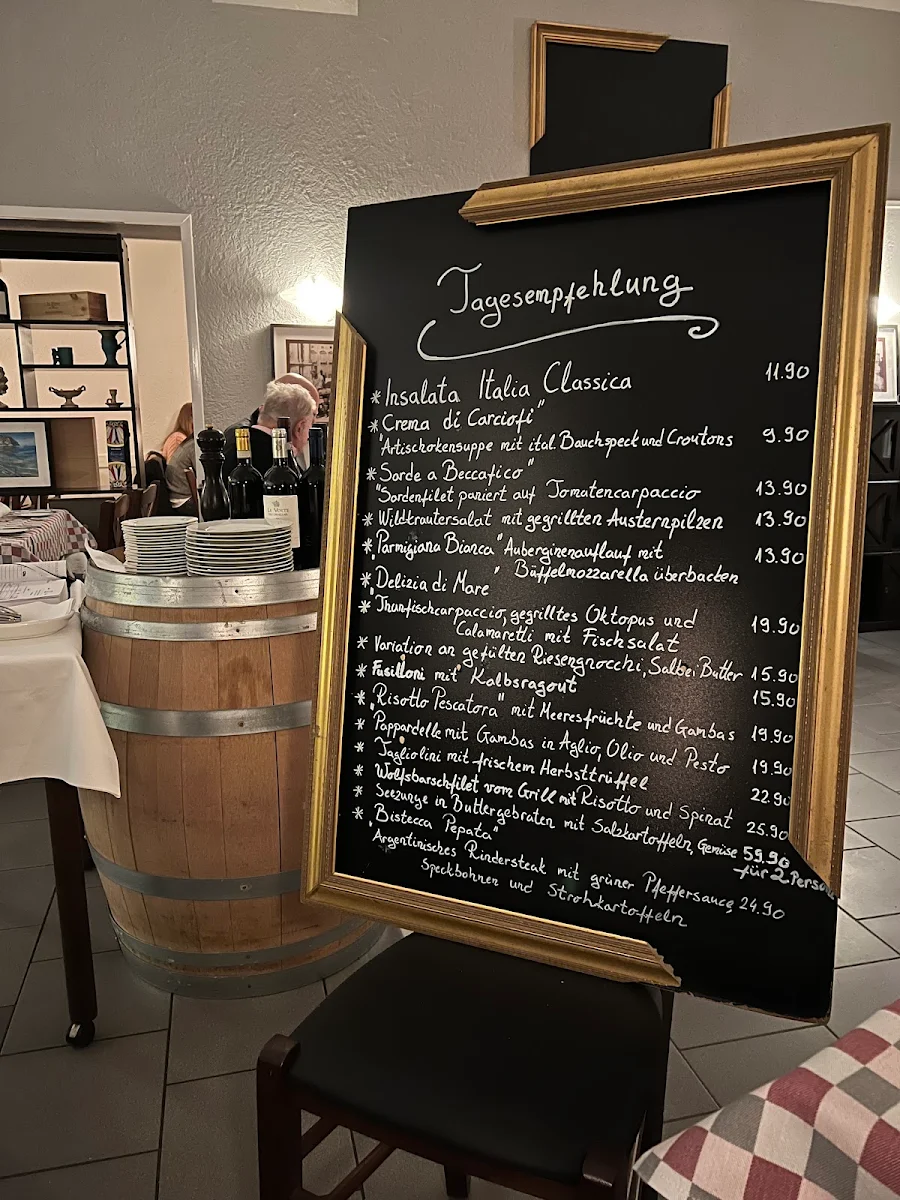 Tagesempfehlung
* Insalata Italia Classica 11.90
* "Crema di Carciofi"
Artischokensuppe mit ital. Bauchspeck und Croutons 9.90
* "Sarde a Beccafico"
Sardenfilet paniert auf Tomatencarpaccio 13.90
* Wildkräutersalat mit gegrillten Austernpilzen 13.90
* "Parmigiana Bianca" Auberginenauflauf mit 13.90
Büffelmozzarella überbacken
* "Delizia di Mare"
* Thunfischcarpaccio, gegrilltes Oktopus und 19.90
Calamaretti mit Fischsalat
* Variation an gefülten Riesengnocchi, Salbei Butter 15.90
* Fusilloni mit Kalbsragout 15.90
* "Risotto Pescatora" mit Meeresfrüchte und Gambas 19.90
* Pappardelle mit Gambas in Aglio, Olio und Pesto 19.90
* Tagliolini mit frischem Herbsttrüffel 22.90
* Wolfsbarschfilet vom Grill mit Risotto und Spinat 25.90
* Seezunge in Buttergebraten mit Salzkartoffeln, Gemüse 59.90
für 2 Person
* "Bistecca Pepata"
Argentinisches Rindersteak mit grüner Pfeffersauce 24.90
Speckbohnen und Strohkartoffeln